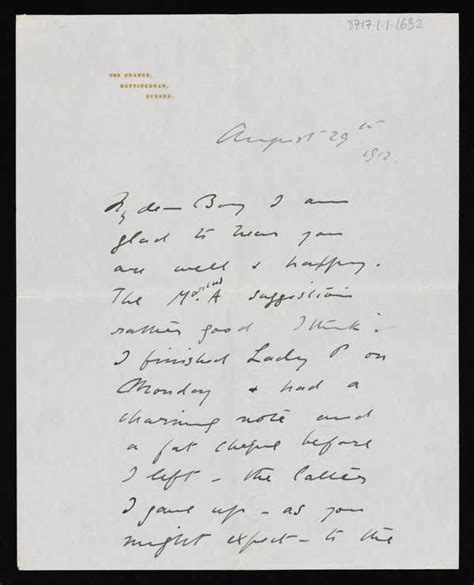 8717.1.1.1632
THE GRANGE,
ROTTINGDEAN,
SUSSEX.
August 29th
1912.
My dear Boy I am
glad to hear you
are well & happy.
The Mrs. A suggestion
rather good I think.
I finished Lady P on
Monday & had a
charming note and
a fat cheque before
I left - the latter
I gave up - as you
might expect - to the